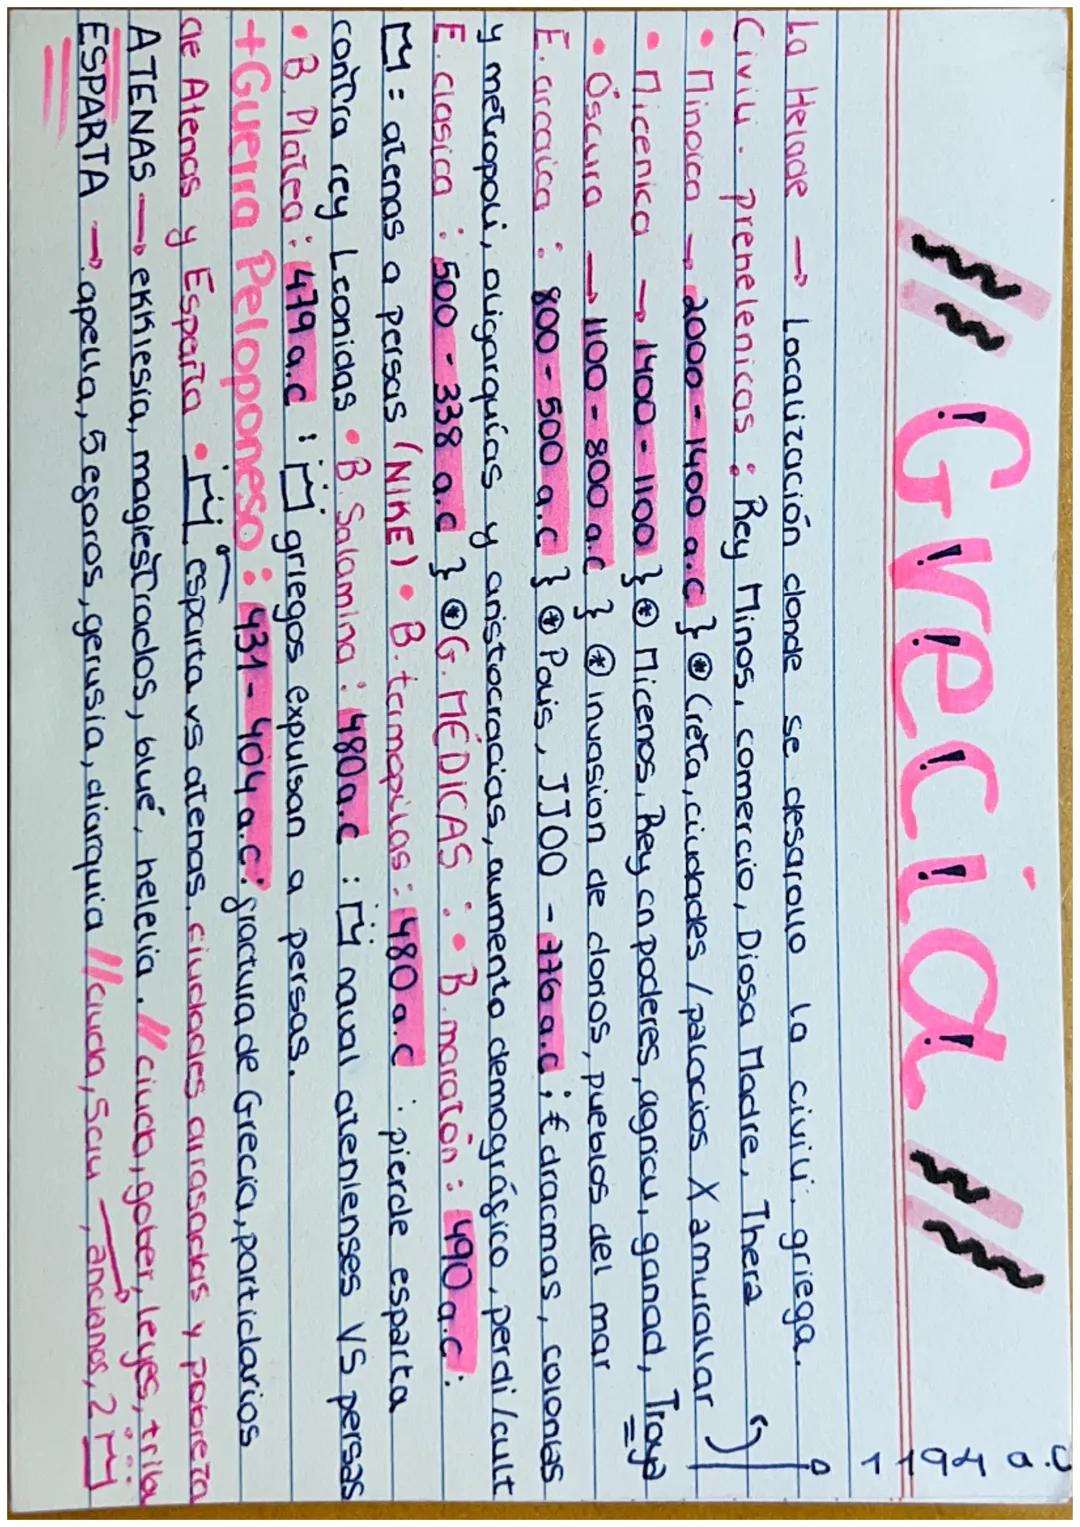 Grecia
1194 a.C
La Helade → Localización donde se desarollo la civili. griega.
Civili. prehelenicas: Rey Minos, comercio, Diosa Madre, Thera
• Minoica → 2000-1400 a.C } * Creta, ciudades / palacios X amurallar
• Micenica → 1400-1100 } * Micenos, Rey en poderes, agricu, ganad, Troya
• Oscura → 1100-800 a.C } * invasion de dorios, pueblos del mar
E. arcaica: 800-500 a.C } * Polis, JJOO - 776 a.C; € dracmas, colonias
y metropoli, oligarquías y aristocracias, aumento demográfico, perdi/cult
E. clasica: 500-338 a.C } * G. MÉDICAS: • B. maratón: 490 a.C:
: atenas a persas (NIKE) • B. termopilas: 480 a.C: pierde esparta
contra rey Leonidas • B. Salamina: 480 a.C: naval atenienses VS persas
• B. Platea: 479 a.C: griegos expulsan a persas.
+Guerra Peloponeso: 431-404 a.C: fractura de Grecia, particlarios
de Atenas y Esparta • esparta vs atenas, ciudades arrasadas y pobreza
ATENAS → ekklesia, magiestrados, blué, helelia. // ciuda, gober, leyes, tribu
ESPARTA → apella, 5 eforos, gerusia, diarquia // ciuda, 5ciu, ancianos, 2